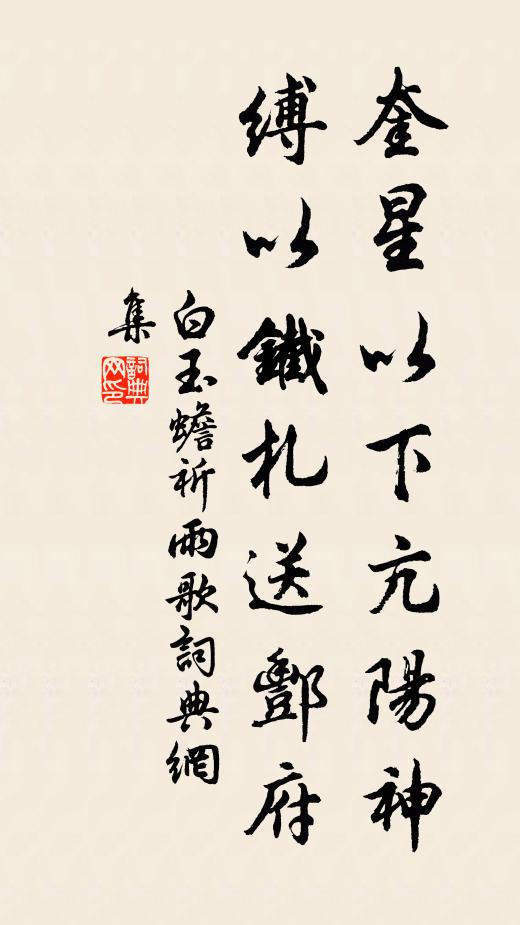 奎星以下亢陽神
縛以鐵札送酆府
白玉蟾祈雨歌詞典網
集
詞典
网印